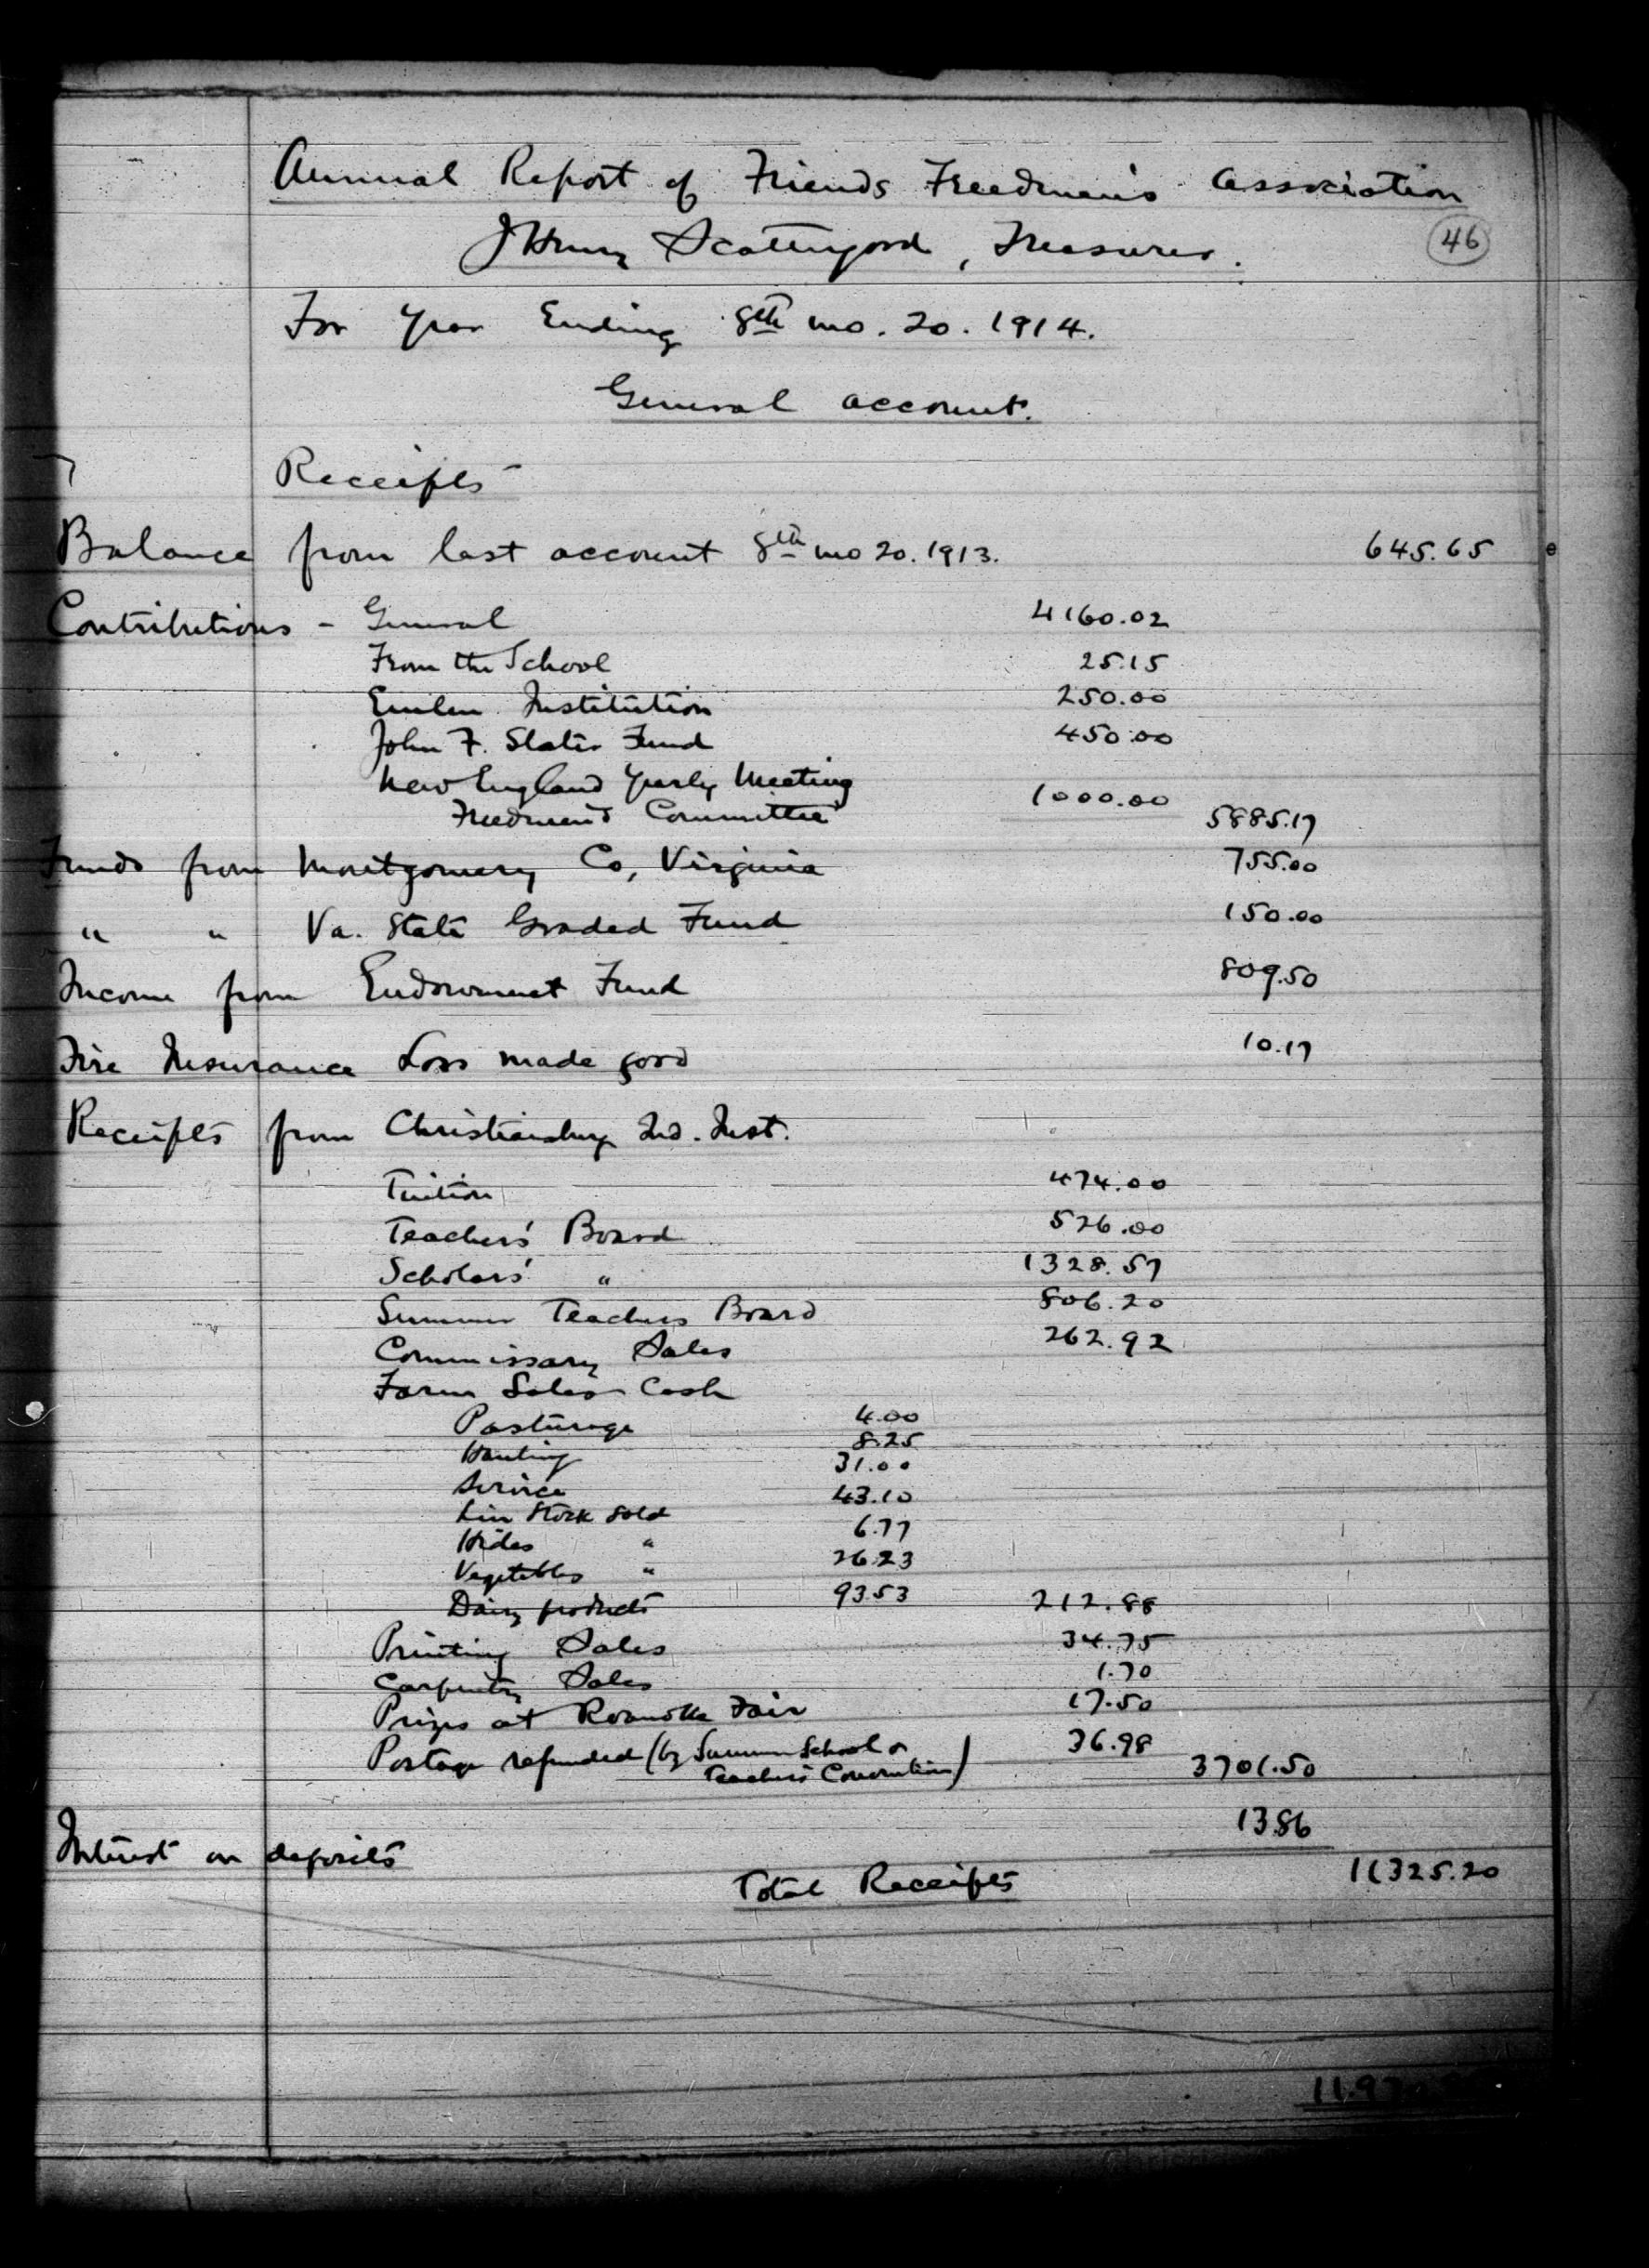 Annual Report of Friends Freedmen's Association
J Henry Scattergood, Treasurer.
46
For Year Ending 8th mo. 20. 1914.
General account.
Receipts
Balance from last account 8th mo 20. 1913. 645.65
Contributions - General 4160.02
From the School 25.15
Emlen Institution 250.00
John F. Slater Fund 450.00
New England Yearly Meeting
Freedmen's Committee 1000.00 5885.17
Funds from Montgomery Co, Virginia 755.00
" " Va. State Graded Fund 150.00
Income from Endowment Fund 809.50
Fire Insurance Loss made good 10.17
Receipts from Christiansburg Ind. Inst.
Tuition 474.00
Teachers' Board 526.00
Scholars' " 1328.57
Summer Teachers Board 806.20
Commissary Sales 262.92
Farm Sales - Cash
Pasturage 4.00
Hauling 8.25
Service 31.00
Live Stock sold 43.10
Hides " 6.77
Vegetables " 26.23
Dairy products 93.53 212.88
Printing Sales 34.75
Carpentry Sales 1.70
Prizes at Roanoke Fair 17.50
Postage refunded (by Summer School &
Teachers' Convention) 36.98 3701.50
Interest on deposits 13.86
Total Receipts 11325.20